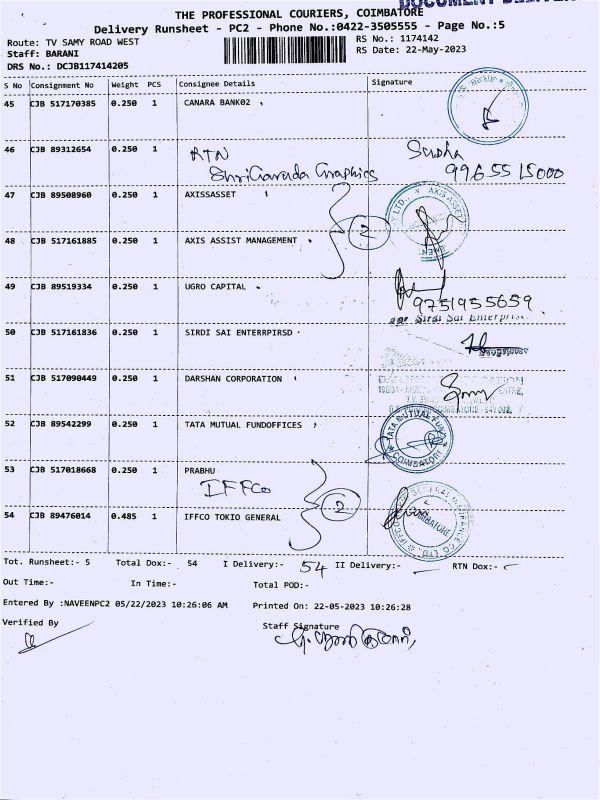 DOCUMENT
THE PROFESSIONAL COURIERS, COIMBATORE
Delivery Runsheet - PC2 - Phone No.:0422-3505555 - Page No.:5
Route: TV SAMY ROAD WEST
RS No.: 1174142
Staff: BARANI
RS Date: 22-May-2023
DRS No.: DCJB117414205
S No Consignment No Weight PCS Consignee Details Signature
45 CJB 517170385 0.250 1 CANARA BANK02
46 CJB 89312654 0.250 1 RTN Susha
Shri Garuda Graphics 9965515000
47 CJB 89508960 0.250 1 AXISSASSET
2
48 CJB 517161885 0.250 1 AXIS ASSIST MANAGEMENT
49 CJB 89519334 0.250 1 UGRO CAPITAL
9751955659
Sirdi Sai Enterprise
50 CJB 517161836 0.250 1 SIRDI SAI ENTERRPIRSD
51 CJB 517090449 0.250 1 DARSHAN CORPORATION
52 CJB 89542299 0.250 1 TATA MUTUAL FUNDOFFICES
TATA MUTUAL FUND
COIMBATORE
53 CJB 517018668 0.250 1 PRABHU
IFFCO
2
54 CJB 89476014 0.485 1 IFFCO TOKIO GENERAL
COIMBATORE
Tot. Runsheet:- 5 Total Dox:- 54 I Delivery:- 54 II Delivery:- - RTN Dox:- -
Out Time:- In Time:- Total POD:-
Entered By :NAVEENPC2 05/22/2023 10:26:06 AM Printed On: 22-05-2023 10:26:28
Verified By Staff Signature